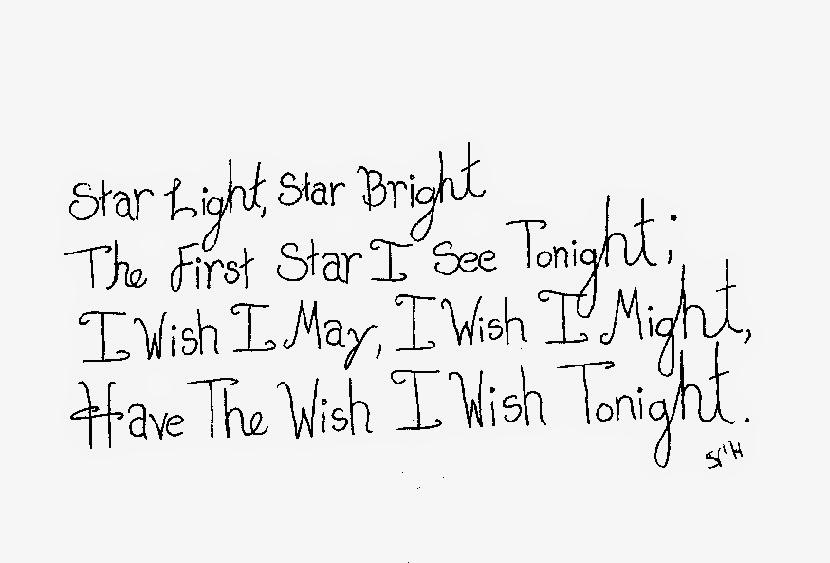 Star Light, Star Bright
The First Star I See Tonight;
I Wish I May, I Wish I Might,
Have The Wish I Wish Tonight.